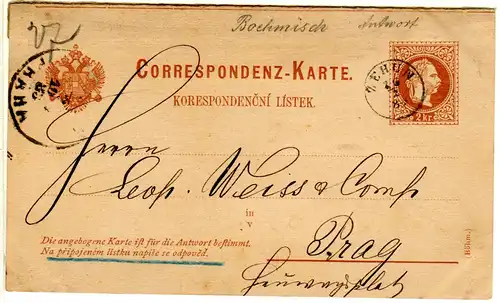 Boehmisch Antwort
CORRESPONDENZ-KARTE.
KORESPONDENČNÍ LÍSTEK.
2 kr.
Herrn
Leop. Weiss & Comp
in
v
Prag
Die angebogene Karte ist für die Antwort bestimmt.
Na připojeném lístku napiše se odpověď.
(Böhm.)